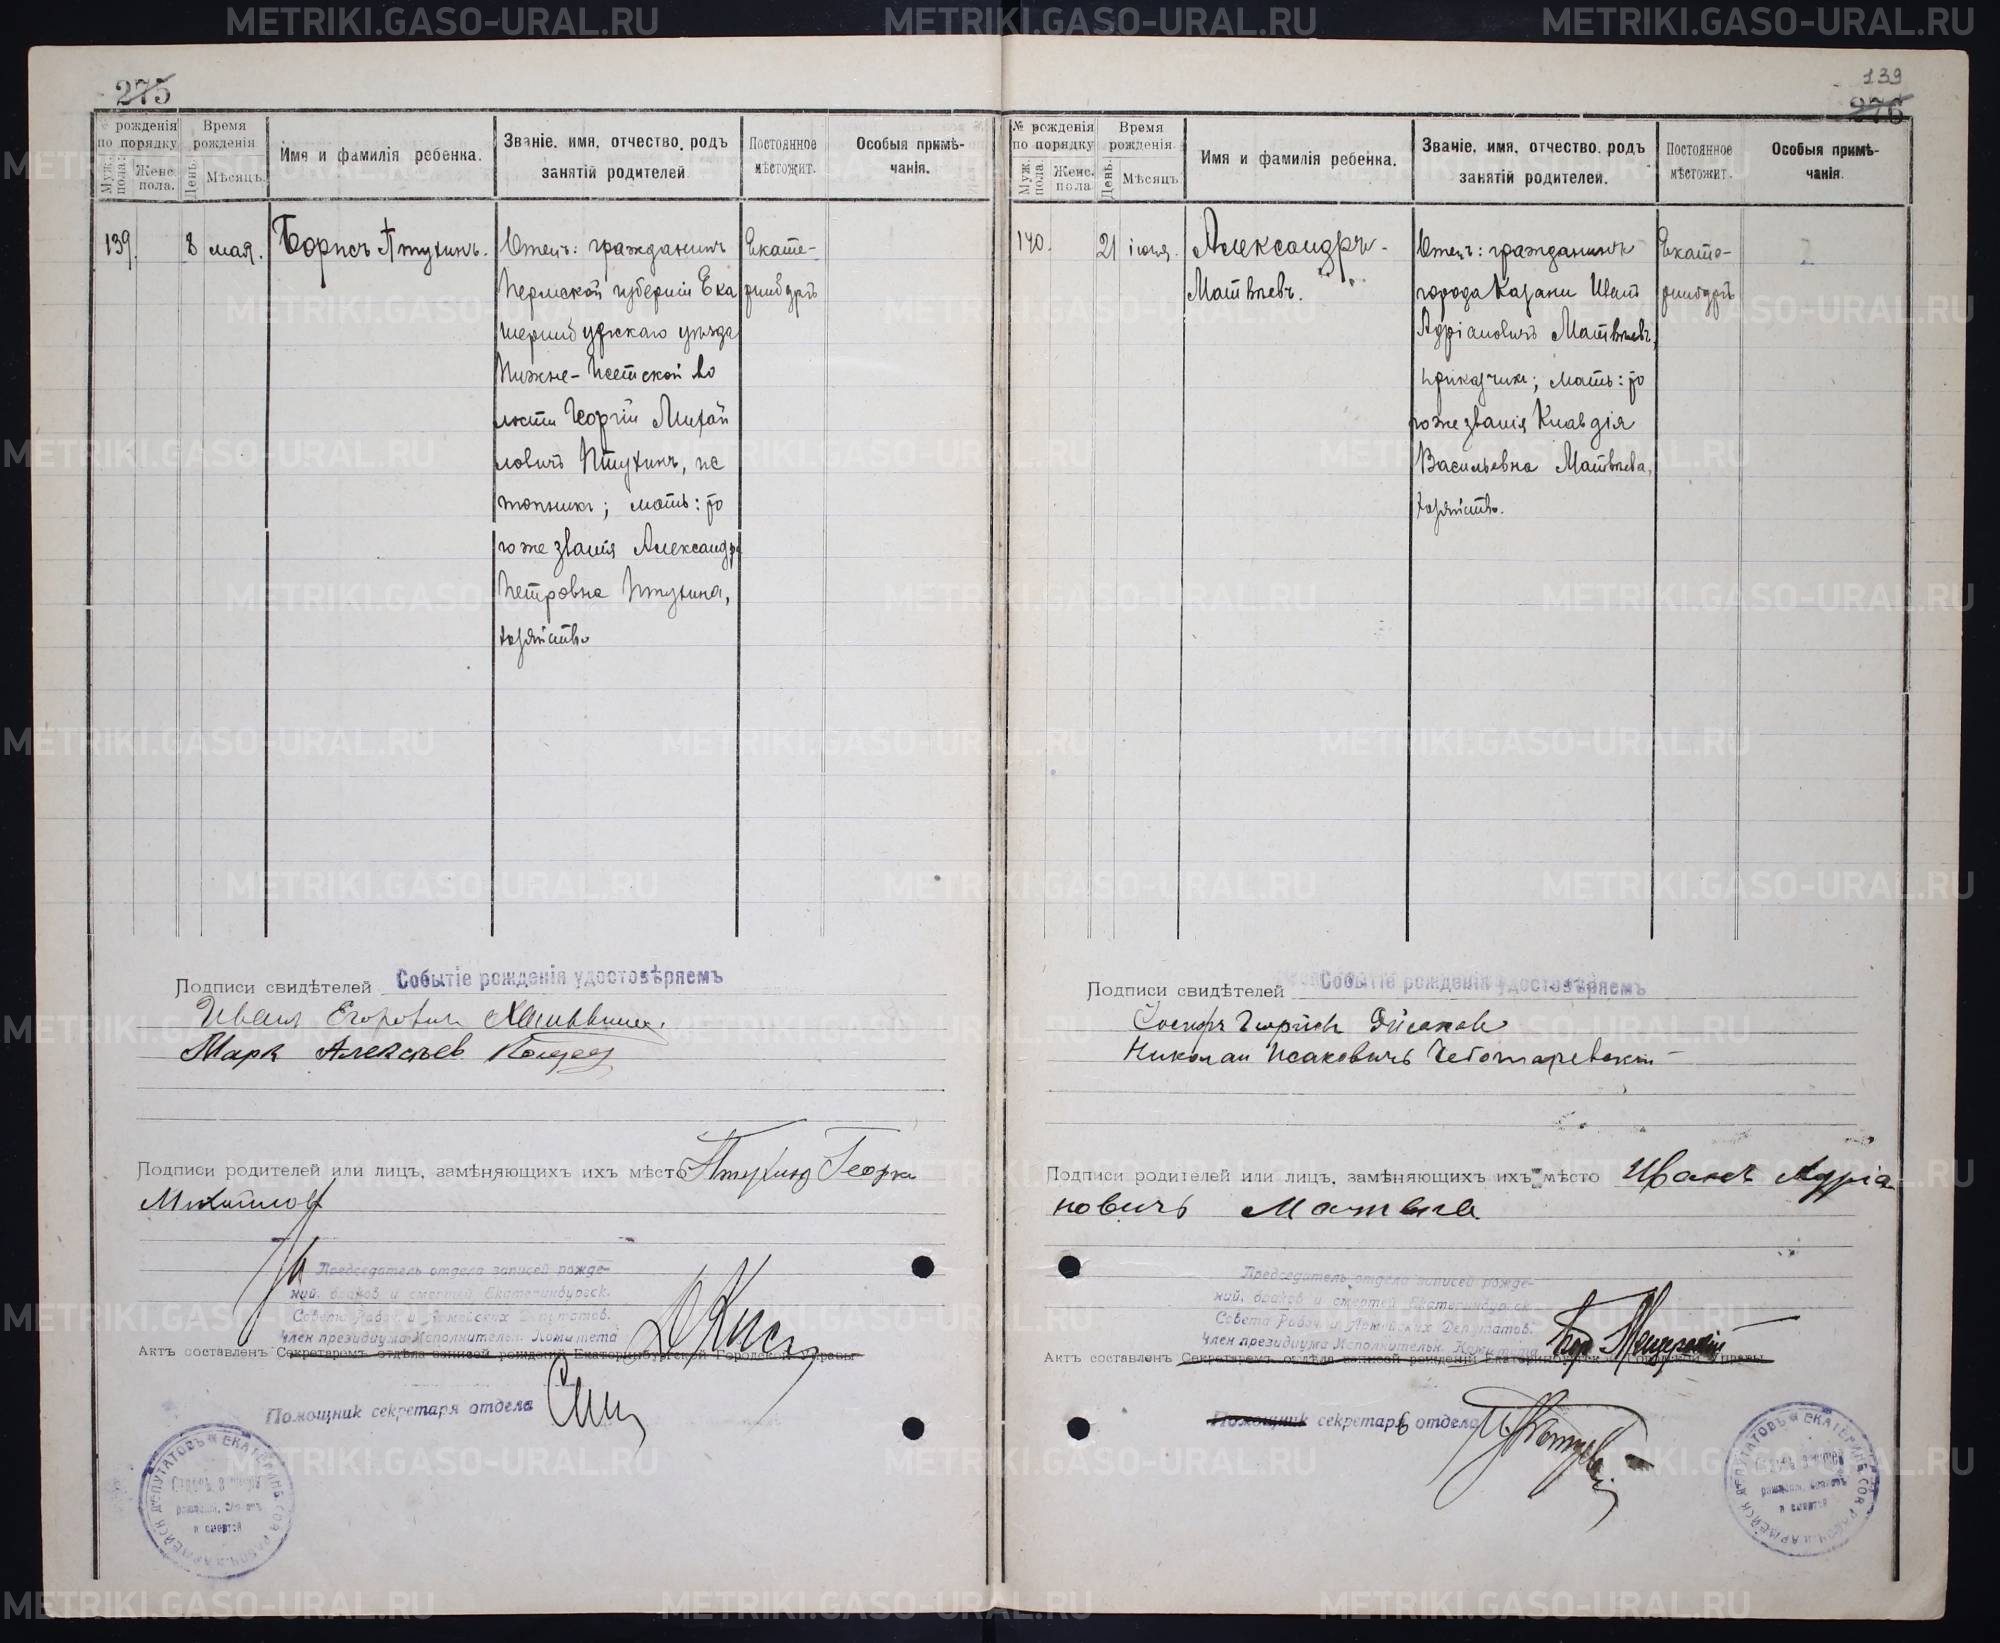 275
№ рожденія по порядку
Муж. пола.
Женс. пола.
Время рожденія
День.
Мѣсяцъ.
Имя и фамилія ребенка.
Званіе, имя, отчество, родъ занятій родителей.
Постоянное мѣстожит.
Особыя примѣчанія.
139.
8
мая.
Борисъ Птухинъ.
Отецъ: гражданинъ
Пермской губерніи Ека
теринбургскаго уѣзда
Нижне-Исетской во
лости Георгій Михай
ловичъ Птухинъ,
мать: то
гоже званія Александра
Петровна Птухина,
хозяйство
Екате-
ринбургъ
Подписи свидѣтелей Событіе рожденія удостовѣряемъ
Иван Егорович
Марк Алексѣев
Подписи родителей или лицъ, замѣняющихъ ихъ мѣсто Птухинъ Георги
Михайлов
Председатель отдела записей рожде-
ний, браков и смертей Екатеринбургск.
Совета Рабоч. и Армейских Депутатов.
Член президиума Исполнительн. Комитета
Актъ составленъ Секретаремъ отдѣла записей рожденій Екатеринбургской Городской Управы
Помощник секретаря отдела
ЕКАТЕРИНБ. СОВ. РАБОЧ. И АРМЕЙСК. ДЕПУТАТОВЪ
рожден., браковъ
и смертей
139
276
№ рожденія по порядку
Муж. пола.
Женс. пола
Время рожденія.
День.
Мѣсяцъ
Имя и фамилія ребенка.
Званіе, имя, отчество, родъ занятій родителей.
Постоянное мѣстожит.
Особыя примѣчанія.
140.
21
іюля.
Александръ
Матвѣевъ.
Отецъ: гражданинъ
города Казани Иванъ
Адріановичъ Матвѣевъ,
приказчикъ; мать: то
гоже званія Клавдія
Васильевна Матвѣева,
хозяйство.
Екате-
ринбургъ
Подписи свидѣтелей Событіе рожденія удостовѣряемъ
Николай Исаковичъ Чеботаревскій
Подписи родителей или лицъ, замѣняющихъ ихъ мѣсто Иванъ Адріа
новичъ Матвѣев
Председатель отдела записей рожде-
ний, браков и смертей Екатеринбургск.
Совета Рабоч. и Армейских Депутатов.
Член президиума Исполнительн. Комитета
Актъ составленъ Секретаремъ отдѣла записей рожденій Екатеринбургской Городской Управы
Помощник секретарь отдела
ЕКАТЕРИНБ. СОВ. РАБОЧ. И АРМЕЙСК. ДЕПУТАТОВЪ
рожден., браковъ
и смертей
METRIKI.GASO-URAL.RU